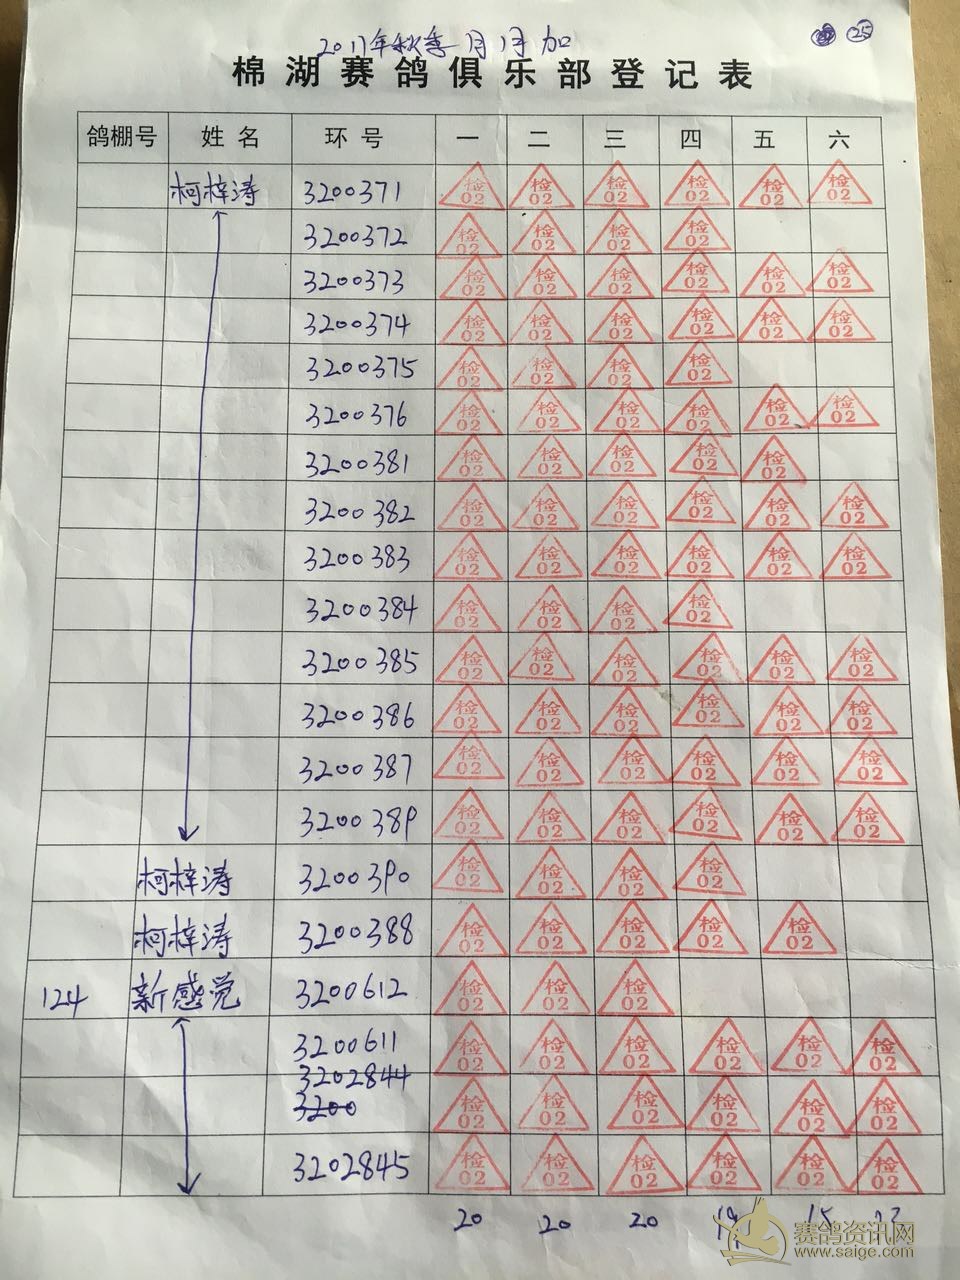 2017年秋季 月 日 加 25
棉湖赛鸽俱乐部登记表
鸽棚号 姓名 环号 一 二 三 四 五 六
柯梓涛 3200371 检02 检02 检02 检02 检02 检02
3200372 检02 检02 检02 检02
3200373 检02 检02 检02 检02 检02 检02
3200374 检02 检02 检02 检02 检02 检02
3200375 检02 检02 检02 检02
3200376 检02 检02 检02 检02 检02 检02
3200381 检02 检02 检02 检02 检02
3200382 检02 检02 检02 检02 检02 检02
3200383 检02 检02 检02 检02 检02 检02
3200384 检02 检02 检02 检02
3200385 检02 检02 检02 检02 检02 检02
3200386 检02 检02 检02 检02 检02 检02
3200387 检02 检02 检02 检02 检02 检02
3200389 检02 检02 检02 检02 检02 检02
柯梓涛 3200390 检02 检02 检02 检02
柯梓涛 3200388 检02 检02 检02 检02 检02
124 新感觉 3200612 检02 检02 检02
3200611 检02 检02 检02 检02 检02 检02
3202844
3200 检02 检02 检02 检02 检02 检02
3202845 检02 检02 检02 检02 检02 检02
20 20 20 19 15
赛鸽资讯网
www.saige.com